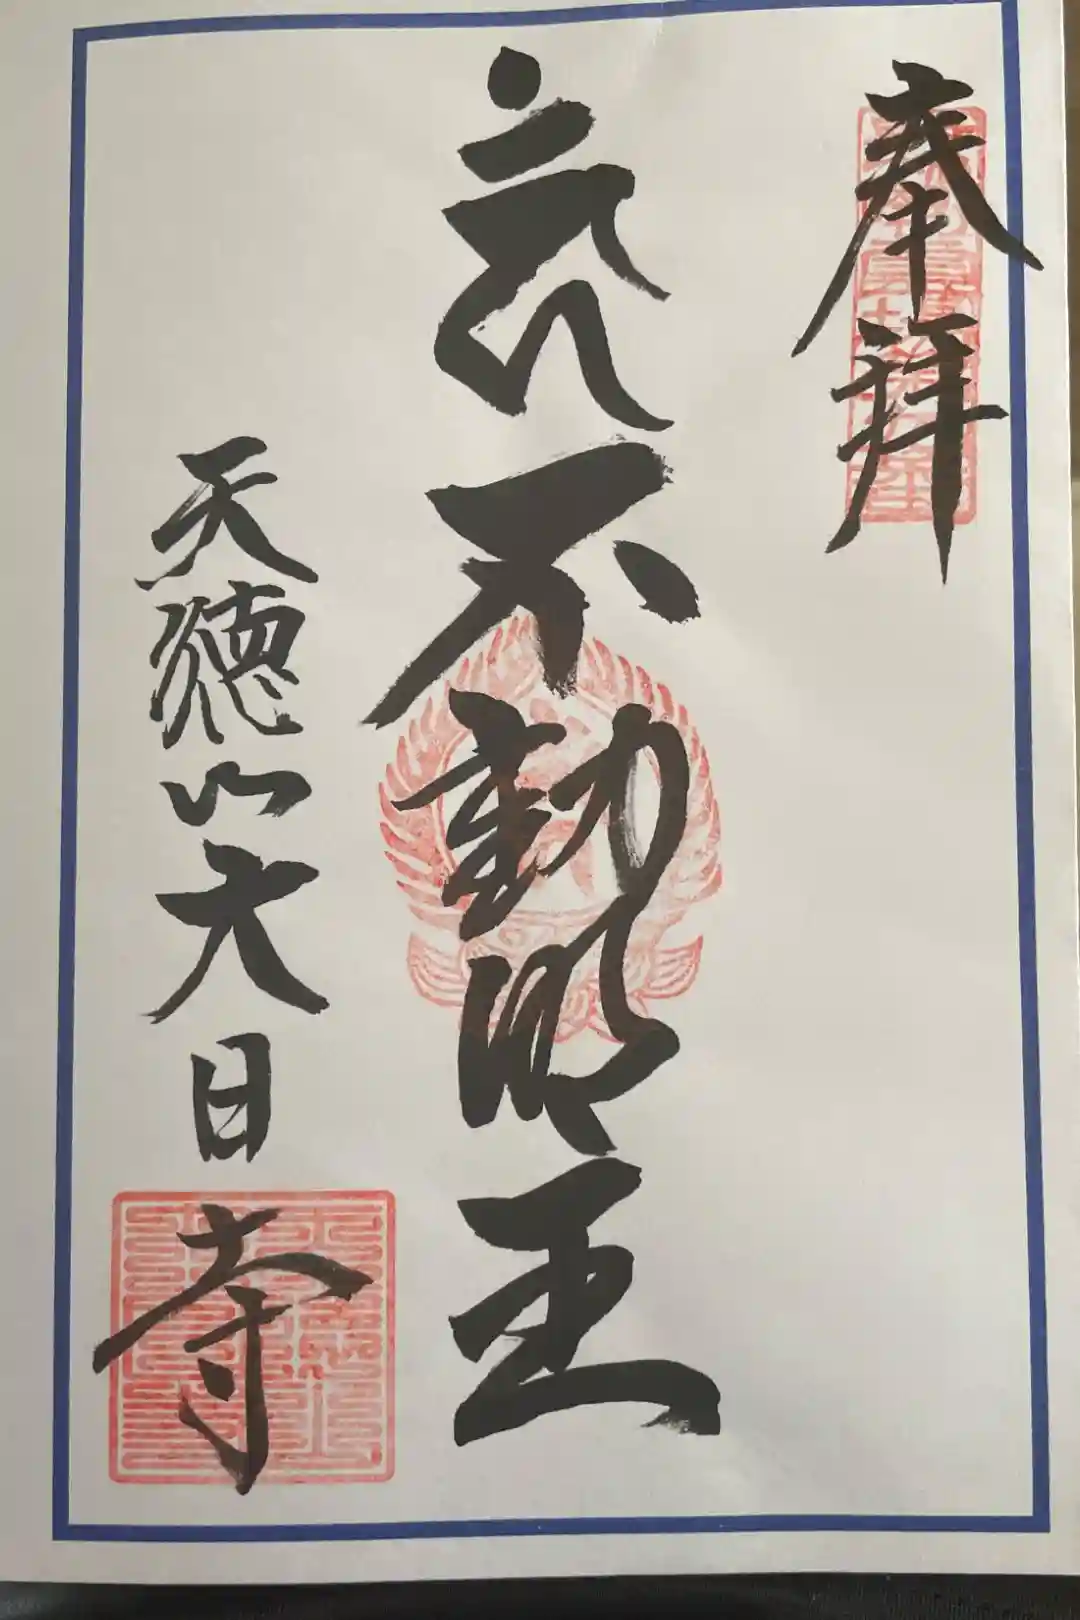 奉拝
不動明王
天徳山大日寺